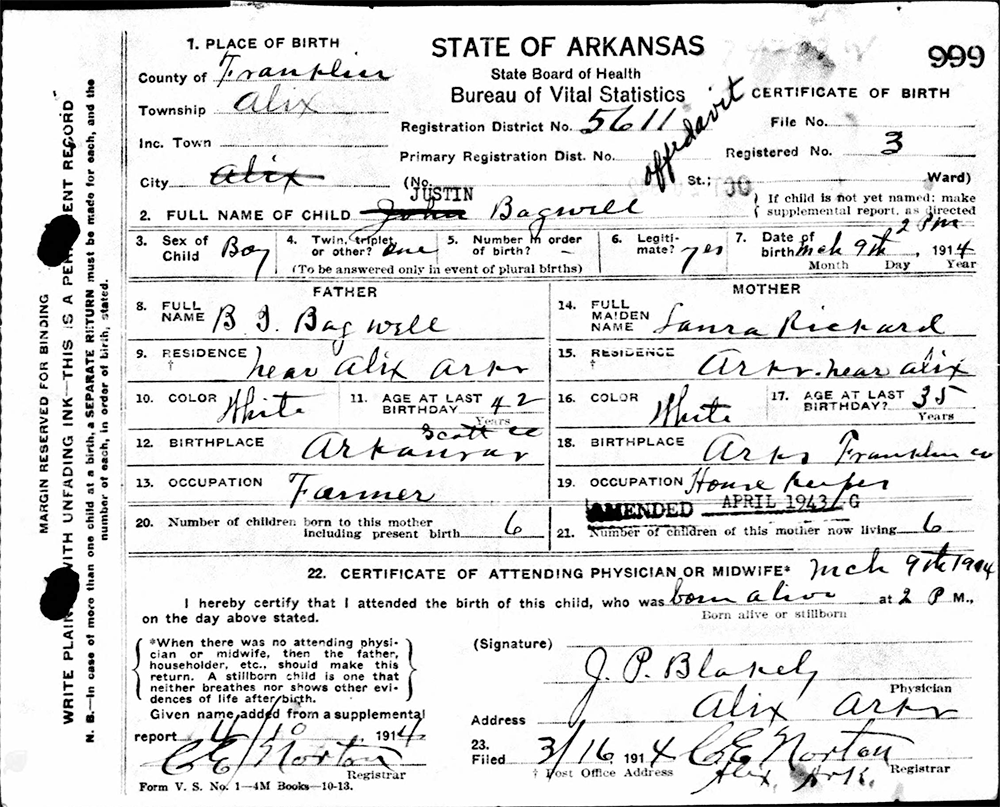 1. PLACE OF BIRTH
County of Franklin
Township Alix
Inc. Town
City Alix
STATE OF ARKANSAS
State Board of Health
Bureau of Vital Statistics
CERTIFICATE OF BIRTH
999
Registration District No. 5611
File No.
Primary Registration Dist. No.
Registered No. 3
affidavit
(No. St.; Ward)
JUSTIN
2. FULL NAME OF CHILD John Bagwell
{ If child is not yet named; make
supplemental report, as directed
3. Sex of Child Boy
4. Twin, triplet or other? one
5. Number in order of birth? –
(To be answered only in event of plural births)
6. Legitimate? yes
7. Date of birth Mch 9th, 1914 2 Pm
Month Day Year
FATHER
8. FULL NAME B. I. Bagwell
9. RESIDENCE † near Alix Ark
10. COLOR White
11. AGE AT LAST BIRTHDAY 42
Years
12. BIRTHPLACE Arkansas Scott Co
13. OCCUPATION Farmer
MOTHER
14. FULL MAIDEN NAME Laura Rickard
15. RESIDENCE † Ark. near Alix
16. COLOR White
17. AGE AT LAST BIRTHDAY? 35
Years
18. BIRTHPLACE Ark Franklin co
19. OCCUPATION House Keeper
AMENDED APRIL 1943/G
20. Number of children born to this mother
including present birth 6
21. Number of children of this mother now living 6
22. CERTIFICATE OF ATTENDING PHYSICIAN OR MIDWIFE* Mch 9th 1914
I hereby certify that I attended the birth of this child, who was born alive at 2 P M.,
Born alive or stillborn
on the day above stated.
{ *When there was no attending physi-
cian or midwife, then the father,
householder, etc., should make this
return. A stillborn child is one that
neither breathes nor shows other evi-
dences of life after birth. }
Given name added from a supplemental
report 4/10 1914
C E Norton
Registrar
Form V. S. No. 1—4M Books—10-13.
(Signature)
J. P. Blakely
Physician
Address Alix Ark
23.
Filed 3/16 1914 C E Norton
† Post Office Address Alix, Ark. Registrar
MARGIN RESERVED FOR BINDING
WRITE PLAIN WITH UNFADING INK—THIS IS A PER ENT RECORD
N. B.—In case of more than one child at a birth, a SEPARATE RETURN must be made for each, and the
number of each, in order of birth, stated.